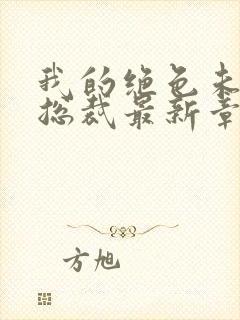 我的绝色未
总裁最新章
方旭